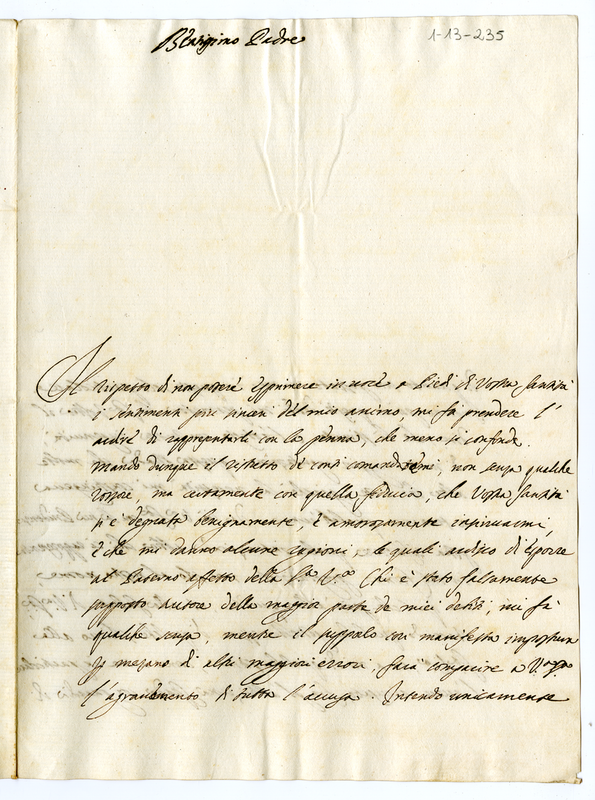 B̃eatissimo Padre
1-13-235
Il rispetto di non potere esprimere in voce a Piedi di Vostra Santità
i sentimenti più sinceri del mio animo mi fà prendere l'
ardire di rappresentarli con la penna, che meno si confonde.
Mando dunque il ristretto de conti comandatemi, non senza qualche
rossore, ma certamente con quella fiducia, che Vostra Santità
si è degnata benignamente, è amorosamente inspirarmi,
è che mi danno alcune ragioni, le quali ardisco di esporre
al Paterno affetto della Stà Vrã. Chi è stato falsamente
supposto autore della maggior parte de miei debiti, mi fà
qualche scusa, mentre il supporlo con manifesta impostura
mezano di altri maggiori errori, farà comparire a
l'agravamento di tutta l'accusa. Intendo unicamente